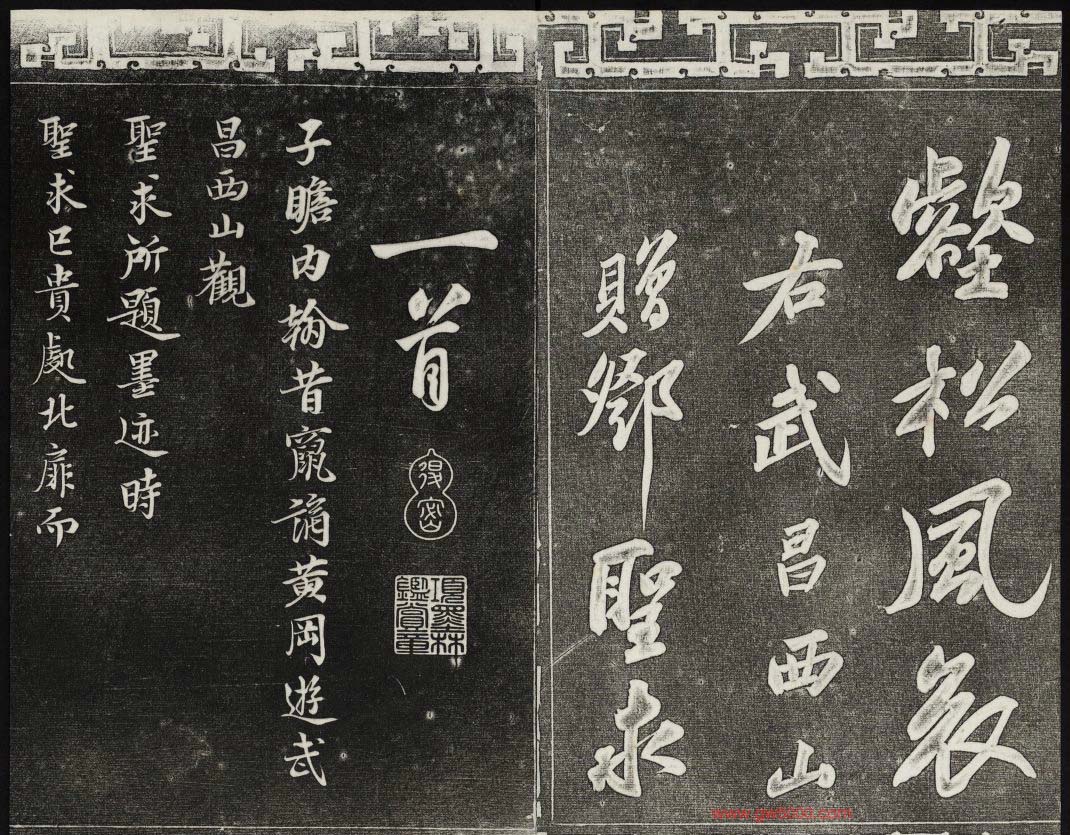 壑松風哀
右武昌西山
贈鄧聖求
一首
得密
項墨林
鑑賞章
子瞻内翰昔竄謫黄岡遊武
昌西山觀
聖求所題墨迹時
聖求已貴處北扉而